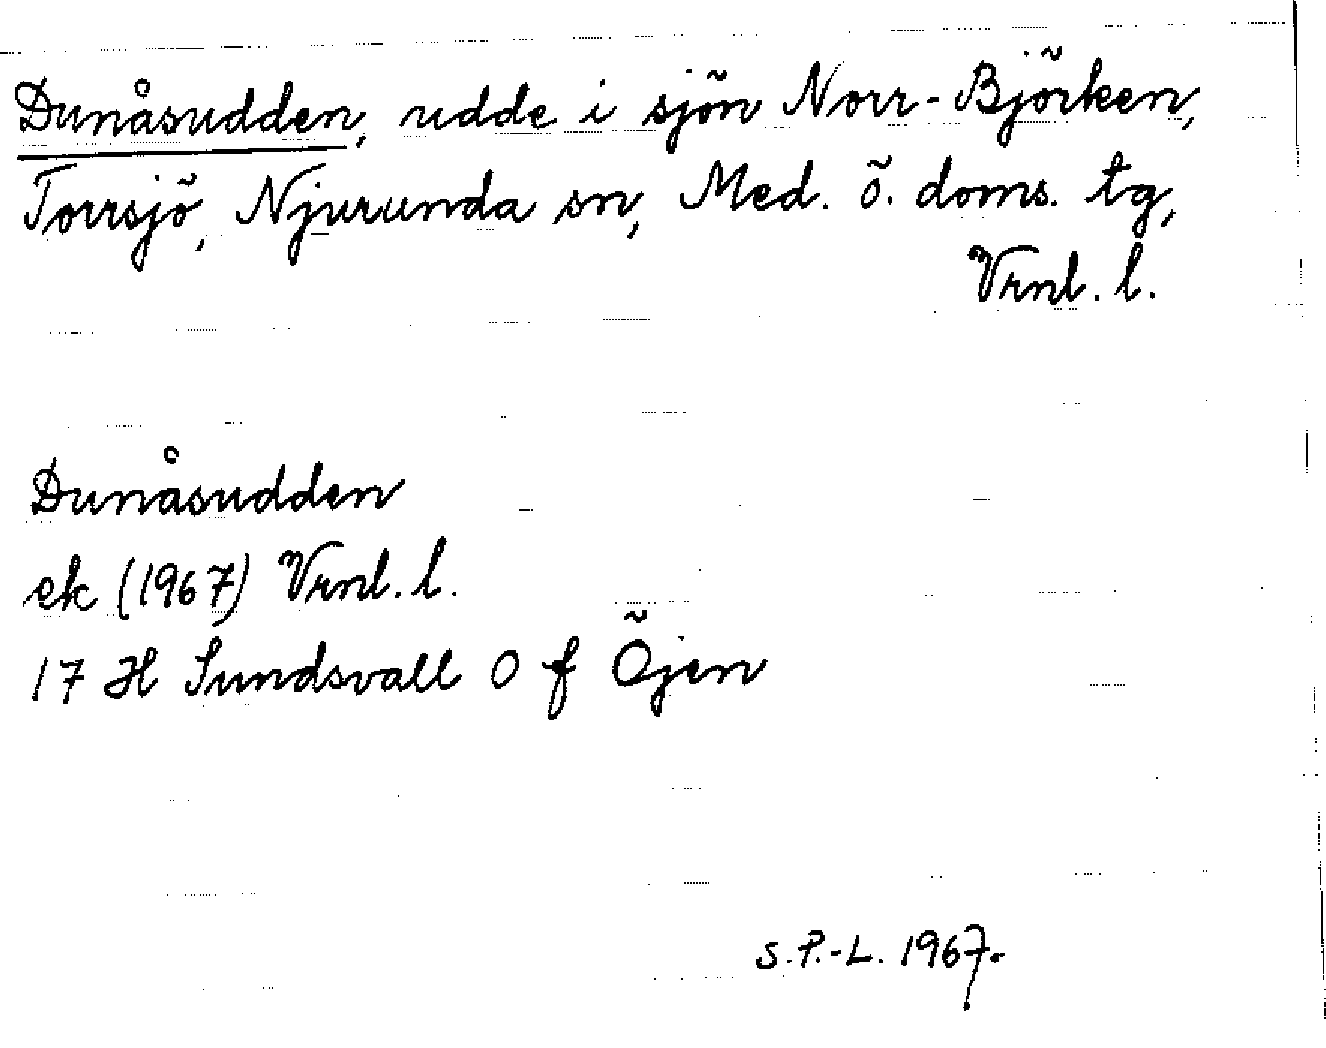 Dunåsudden, udde i sjön Norr-Björken,
Torrsjö, Njurunda sn, Med. ö. doms. tg,
Vrnl. l.
Dunåsudden
ek (1967) Vrnl. l.
17 H Sundsvall O f Öjen
S. P.-L. 1967.